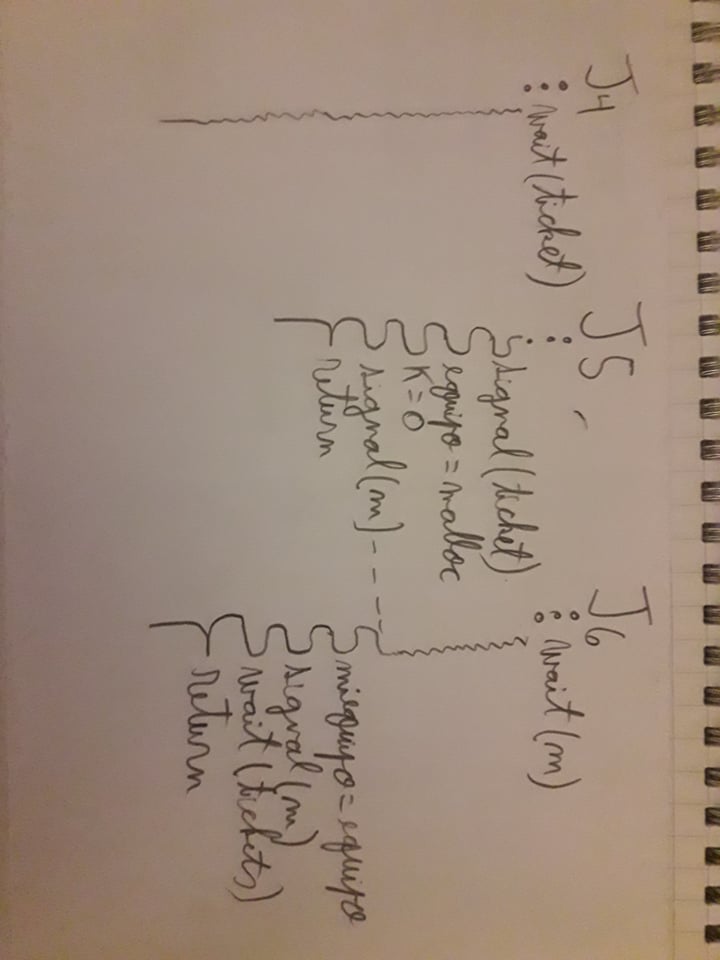 J4
wait(ticket)
J5
signal(ticket)
equipo = malloc
K = 0
signal(m)
return
J6
wait(m)
miequipo = equipo
signal(m)
wait(tickets)
return